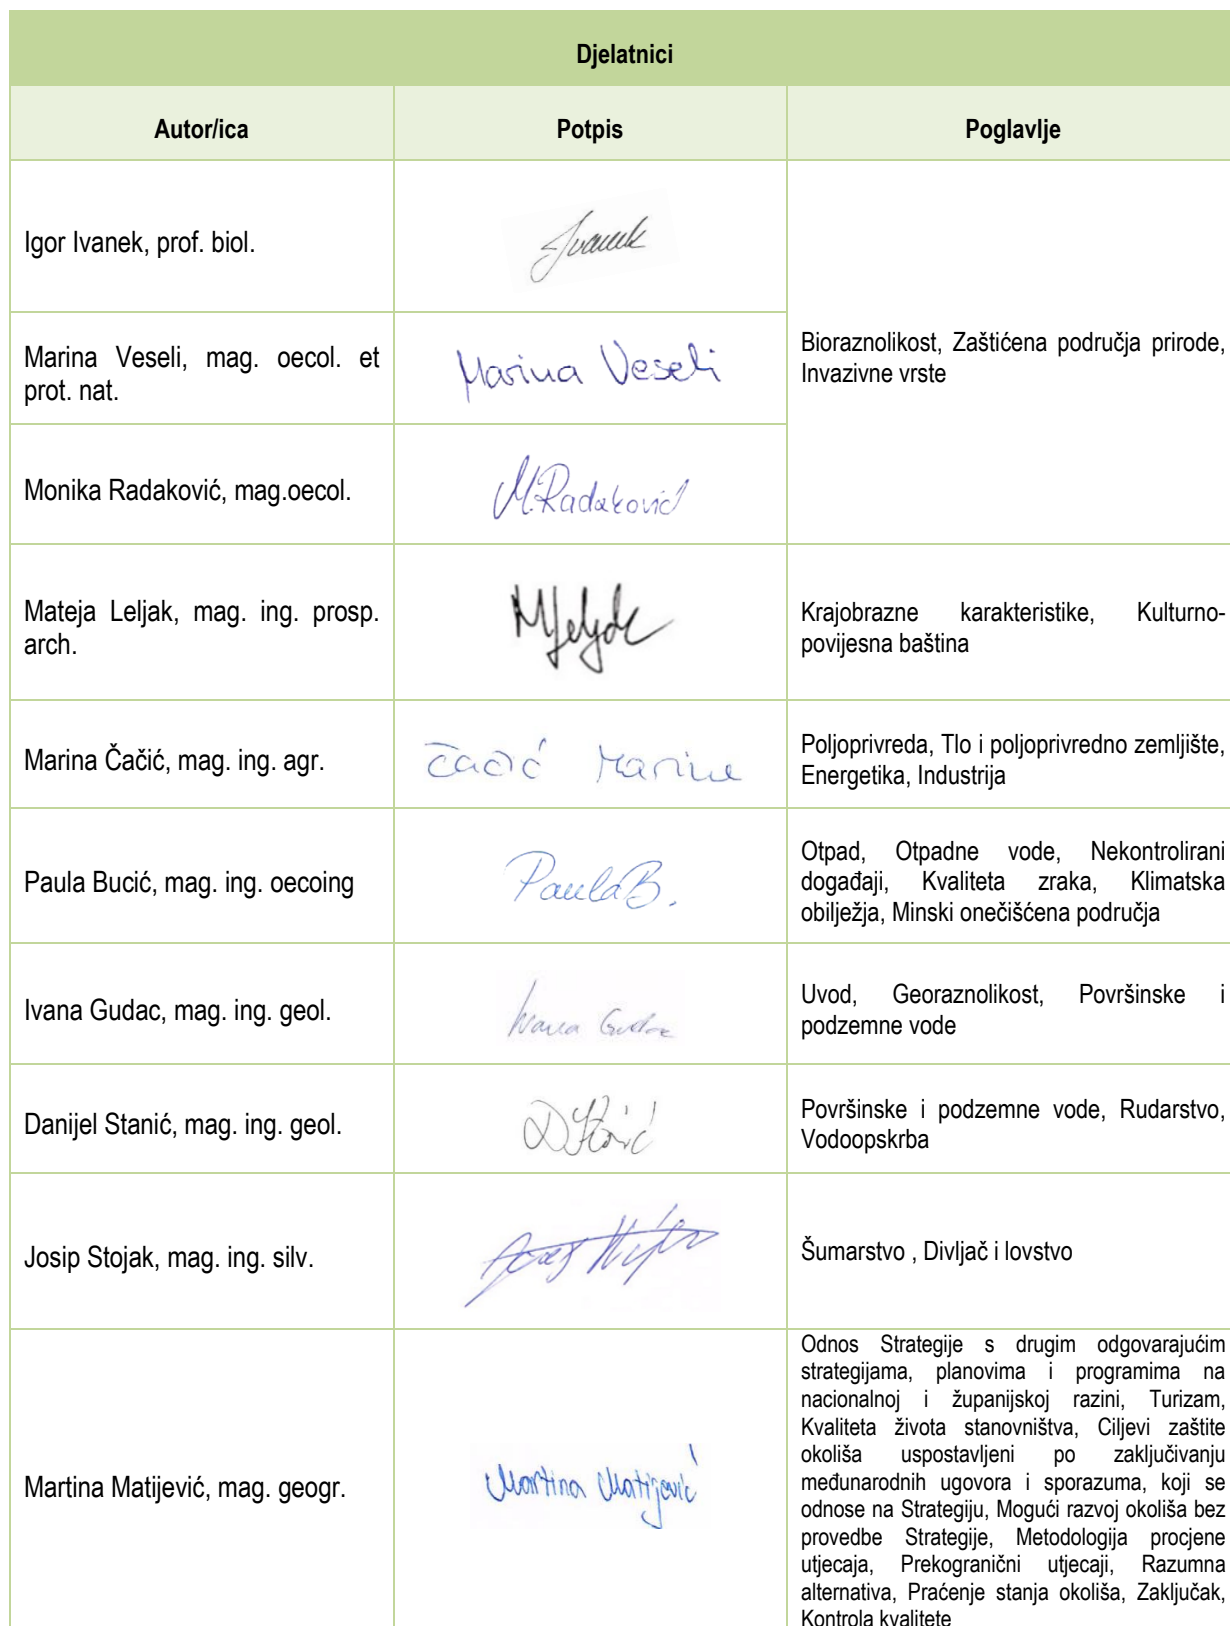 Djelatnici
Autor/ica
Potpis
Poglavlje
Igor Ivanek, prof. biol.
Ivanek
Bioraznolikost, Zaštićena područja prirode,
Invazivne vrste
Marina Veseli, mag. oecol. et
prot. nat.
Marina Veseli
Monika Radaković, mag.oecol.
M.Radaković
Mateja Leljak, mag. ing. prosp.
arch.
MLeljak
Krajobrazne karakteristike, Kulturno-
povijesna baština
Marina Čačić, mag. ing. agr.
Čačić Marina
Poljoprivreda, Tlo i poljoprivredno zemljište,
Energetika, Industrija
Paula Bucić, mag. ing. oecoing
Paula B.
Otpad, Otpadne vode, Nekontrolirani
događaji, Kvaliteta zraka, Klimatska
obilježja, Minski onečišćena područja
Ivana Gudac, mag. ing. geol.
Ivana Gudac
Uvod, Georaznolikost, Površinske i
podzemne vode
Danijel Stanić, mag. ing. geol.
DStanić
Površinske i podzemne vode, Rudarstvo,
Vodoopskrba
Josip Stojak, mag. ing. silv.
Šumarstvo , Divljač i lovstvo
Martina Matijević, mag. geogr.
Martina Matijević
Odnos Strategije s drugim odgovarajućim
strategijama, planovima i programima na
nacionalnoj i županijskoj razini, Turizam,
Kvaliteta života stanovništva, Ciljevi zaštite
okoliša uspostavljeni po zaključivanju
međunarodnih ugovora i sporazuma, koji se
odnose na Strategiju, Mogući razvoj okoliša bez
provedbe Strategije, Metodologija procjene
utjecaja, Prekogranični utjecaji, Razumna
alternativa, Praćenje stanja okoliša, Zaključak,
Kontrola kvalitete